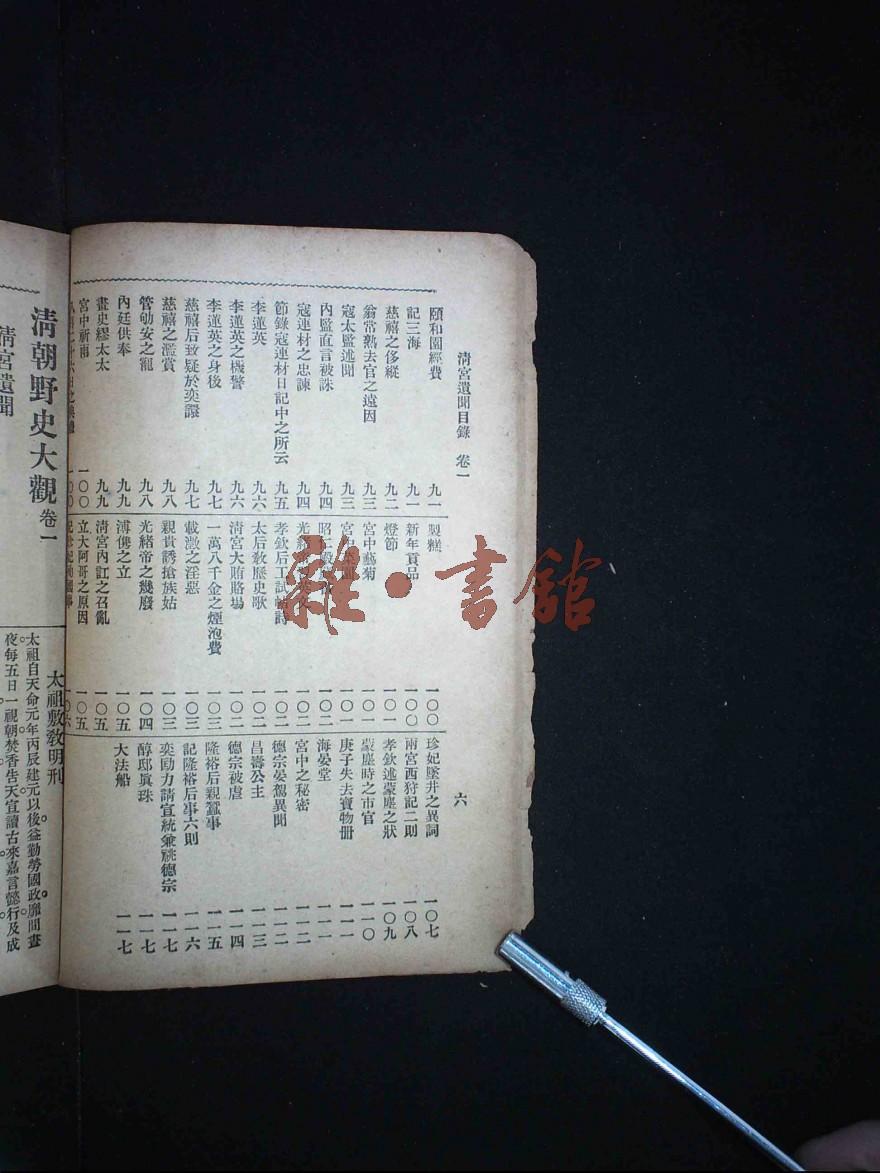 清宮遺聞目錄 卷一 六
頤和園經費 九一
記三海 九一
慈禧之侈縱 九二
翁常熟去官之遠因 九三
寇太監述聞 九三
內監直言被誅 九四
寇連材之忠諫 九四
節錄寇連材日記中之所云 九五
李蓮英 九六
李蓮英之機警 九六
李蓮英之身後 九七
慈禧后致疑於奕譞 九七
慈禧之濫賞 九八
管劬安之寵 九八
內廷供奉 九九
畫史繆太太 九九
宮中祈雨 一〇〇
一〇〇
製糕 一〇〇
新年貢品 一〇〇
燈節 一〇一
宮中藝菊 一〇一
宮中 一〇一
昭 一〇二
光緒 一〇二
孝欽后工試帖詩 一〇二
太后敎歷史歌 一〇二
清宮大賄賂場 一〇二
一萬八千金之煙泡費 一〇三
載澂之淫惡 一〇三
親貴誘搶族姑 一〇三
光緒帝之幾廢 一〇四
溥儁之立 一〇五
清宮內訌之召亂 一〇五
立大阿哥之原因 一〇五
一〇六
珍妃墜井之異詞 一〇七
兩宮西狩記二則 一〇八
孝欽述蒙塵之狀 一〇九
蒙塵時之市官 一一〇
庚子失去寶物册 一一一
海晏堂 一一一
宮中之秘密 一一二
德宗晏駕異聞 一一二
昌壽公主 一一三
德宗被虐 一一四
隆裕后親蠶事 一一五
記隆裕后事六則 一一六
奕劻力請宣統兼祧德宗 一一七
醇邸眞珠 一一七
大法船 一一七
清朝野史大觀 卷一
清宮遺聞
太祖敷敎明刑
太祖自天命元年丙辰建元以後益勤勞國政靡間晝
夜每五日一視朝焚香告天宣讀古來嘉言懿行及成
雜·書館